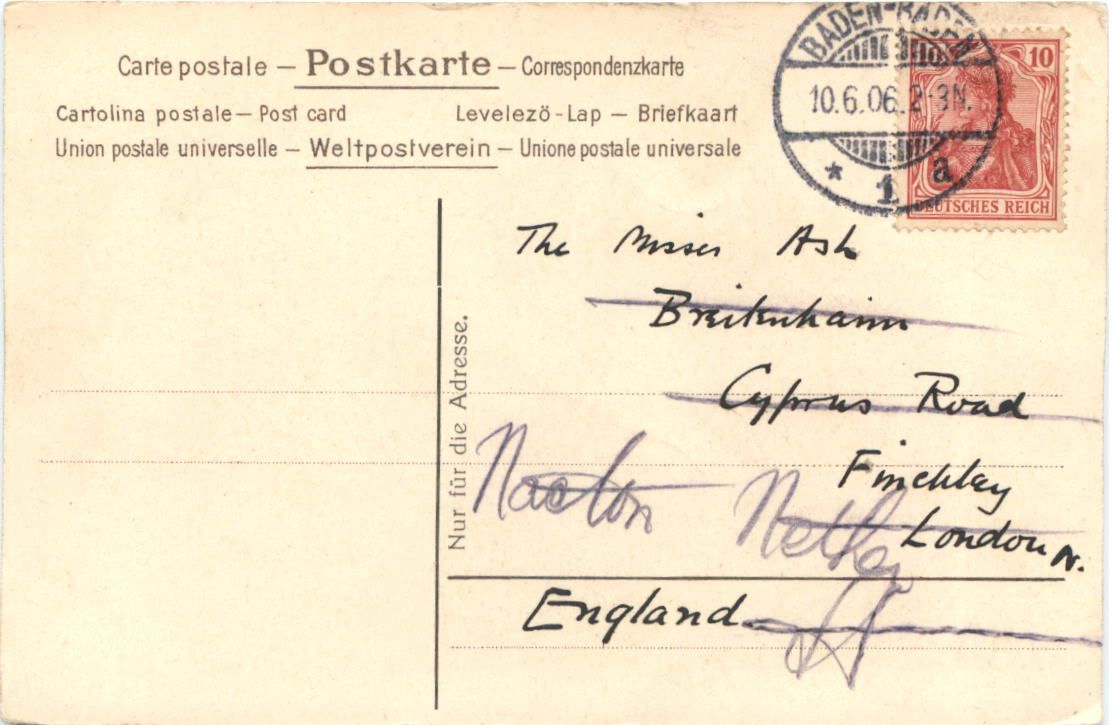 Carte postale – Postkarte – Correspondenzkarte
Cartolina postale – Post card Levelezö-Lap – Briefkaart
Union postale universelle – Weltpostverein – Unione postale universale
BADEN-BADEN
10.6.06. 2-3N.
* 1 a
10
DEUTSCHES REICH
The Misses Ash
Breitenhaim
Cyprus Road
Finchley
London N.
England
Nacton
Nur für die Adresse.